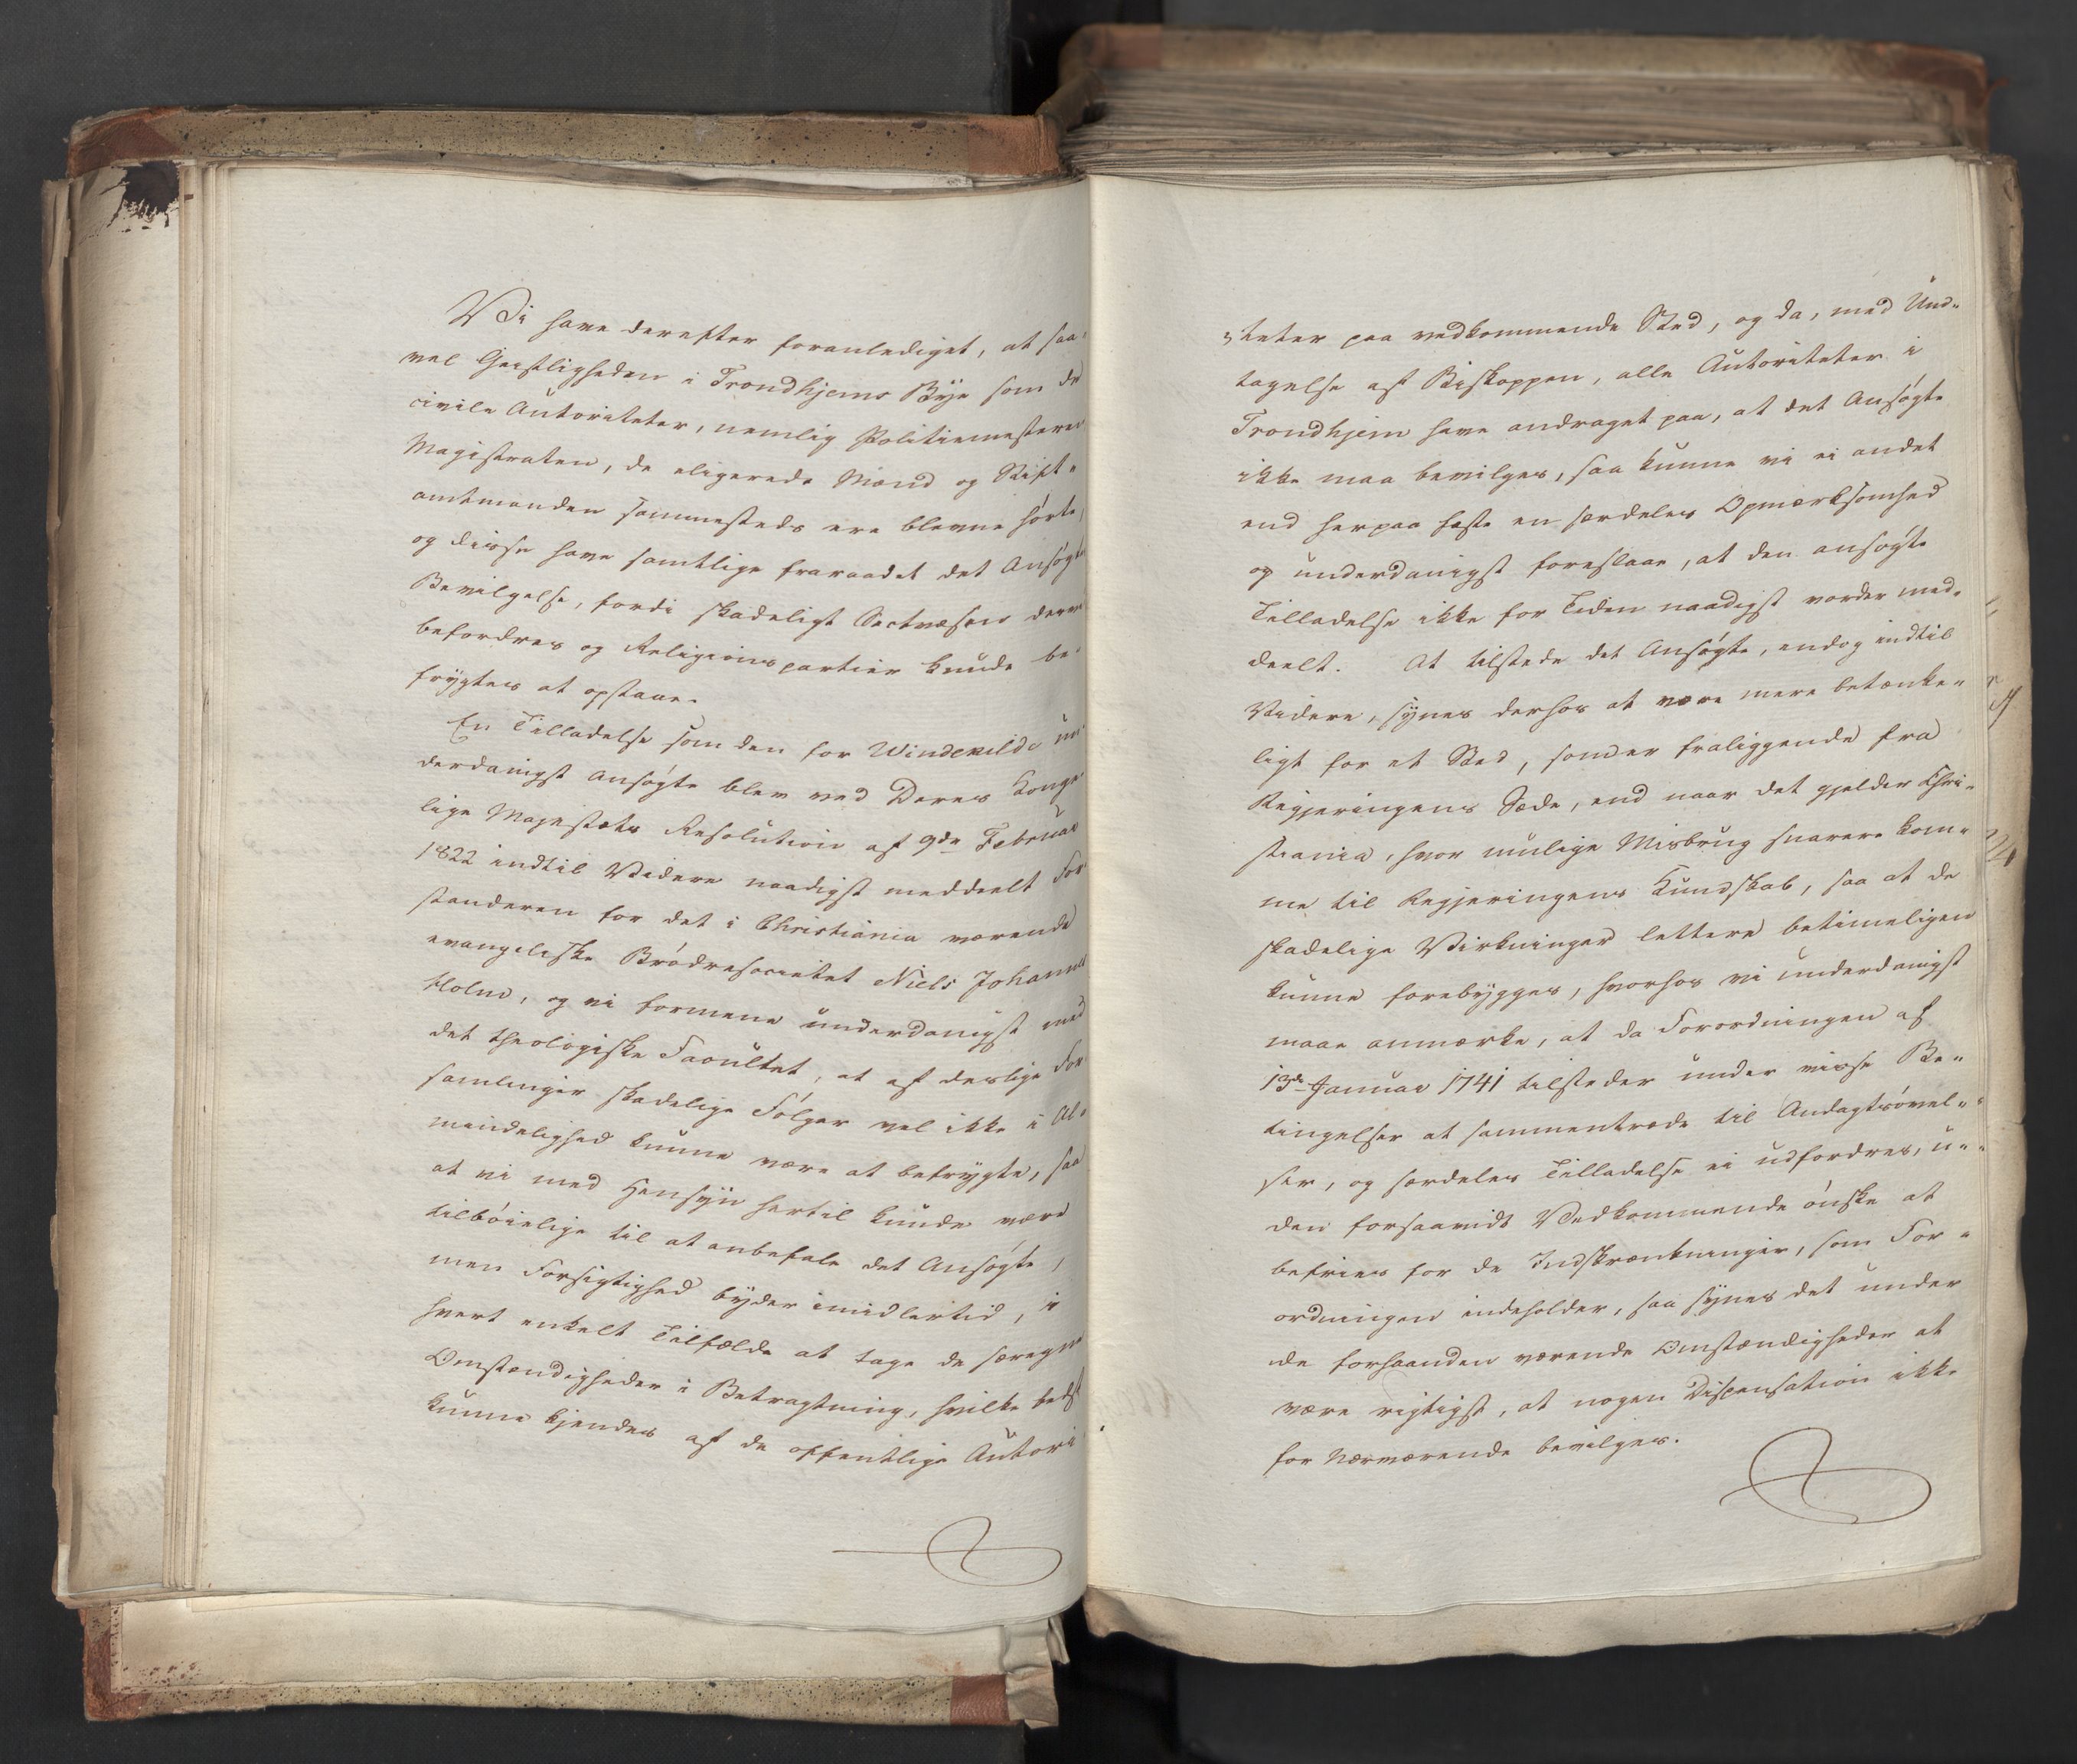 Vi have derefter foranlediget, at saa-
vel Geistligheden i Trondhjems Bÿe som de
civile Autoriteter, nemlig Politiemesteren
Magistraten, de eligerede Mænd og Stift-
amtmanden sammesteds ere blevne hørte,
og disse have samtlige fraraadet det Ansøgte
Bevilgelse, fordi skadeligt Sectvæsen derved
befordres og Religionspartier kunde be-
frÿgtes at opstaae.
En Tilladelse som den for Windekilde un-
derdanigst Ansøgte blev ved Deres Konge-
lige Majestæts Resolution af 9de Februar
1822 indtil Videre naadigst meddeelt For-
standeren for det i Christiania værende
evangeliske Brødresocietet Niels Johannes
Holm, og vi formene underdanigst med
det theologiske Facultet, at af deslige For
samlinger skadelige Følger vel ikke i Al-
mindelighed kunne være at befrÿgte, saa
at vi med Hensÿn hertil kunde være
tilbøielige til at anbefale det Ansøgte,
men Forsigtighed bÿder imidlertid, i
hvert enkelt Tilfælde at tage de særegne
Omstændigheder i Betragtning, hvilke bedst
kunne kjendes af de offentlige Autori
teter paa vedkommende Sted, og da, med Und-
tagelse af Biskoppen, alle Autoriteter i
Trondhjem have andraget paa, at det Ansøgte
ikke maa bevilges, saa kunne vi ei andet
end herpaa hæfte en særdeles Opmærksomhed
og underdanigst foreslaae, at den ansøgte
Tilladelse ikke for Tiden naadigst vorder med-
deelt. At tilstede det Ansøgte, endog indtil
Videre, sÿnes derhos at være mere betænke-
ligt for et Sted, som er fraliggende fra
Regjeringens Sæde, end naar det gjelder Chri-
stiania, hvor mulige Misbrug snarere kom-
me til Regjeringens Kundskab, saa at de
skadelige Virkninger lettere betimeligen
kunne forebÿgges, hvorhos vi underdanigst
maae anmærke, at da Forordningen af
13de Januar 1741 tilsteder under visse Be-
tingelser at sammentræde til Andagtsøvel-
ser, og særdeles Tilladelse ei udfordres, u-
den forsaavidt Vedkommende ønske at
befries for de Indskrænkninger, som For-
ordningen indeholder, saa sÿnes det under
de forhaanden værende Omstændigheder at
være rigtigst, at nogen Dispensation ikke
for Nærværende bevilges.